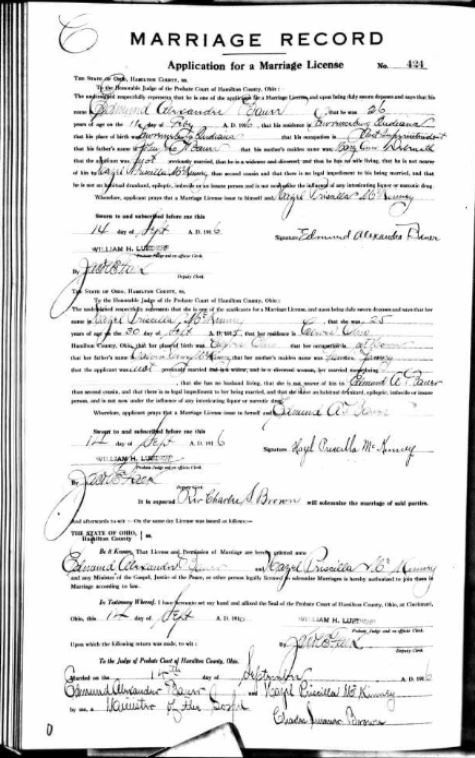 C
MARRIAGE RECORD
Application for a Marriage License No. 424
THE STATE OF OHIO, HAMILTON COUNTY, ss.
To the Honorable Judge of the Probate Court of Hamilton County, Ohio:
The undersigned respectfully represents that he is one of the applicants for a Marriage License, and upon being duly sworn deposes and says that his
name is Edmund Alexandre Baur, that he was 26
years of age on the day of A. D. 191, that his residence is Indiana
that his place of birth was Indiana, that his occupation is
that his father's name is, that his mother's maiden name was Mary
that the applicant was not previously married, that he is a widower and divorced; and that he has no wife living, that he is not nearer
of kin to Hazel Priscilla McKinney than second cousin and that there is no legal impediment to his being married, and that
he is not an habitual drunkard, epileptic, imbecile or an insane person and is not under the influence of any intoxicating liquor or narcotic drug
Wherefore, applicant prays that a Marriage License issue to himself and Hazel Priscilla McKinney
Sworn to and subscribed before me this
14 day of Sept A. D. 1916
Signature Edmund Alexandre Baur
WILLIAM H. LUEDERS
Probate Judge and ex officio Clerk
By
Deputy Clerk.
THE STATE OF OHIO, HAMILTON COUNTY, ss.
To the Honorable Judge of the Probate Court of Hamilton County, Ohio:
The undersigned respectfully represents that she is one of the applicants for a Marriage License and upon being duly sworn deposes and says that her
name is Hazel Priscilla McKinney, that she was 25
years of age on the 30 day of Sept A. D. 1915, that her residence is Ohio
Hamilton County, Ohio, that her place of birth was Ohio that her occupation is at home
that her father's name is McKinney, that her mother's maiden name was
that the applicant was not previously married
, that she has no husband living, that she is not nearer of kin to Edmund A Baur
than second cousin, and that there is no legal impediment to her being married, and that she is not an habitual drunkard, epileptic, imbecile or insane
person, and is not now under the influence of any intoxicating liquor or narcotic drug.
Wherefore, applicant prays that a Marriage License issue to herself and Edmund A Baur
Sworn to and subscribed before me this
14 day of Sept A. D. 1916
Signature Hazel Priscilla McKinney
WILLIAM H. LUEDERS
Probate Judge and ex officio Clerk.
By
Deputy Clerk
It is expected Rev Charles S. Brown will solemnize the marriage of said parties.
And afterwards to wit:- On the same day License was issued as follows:-
THE STATE OF OHIO,
Hamilton County ss.
Be it Known, That License and Permission of Marriage are hereby granted unto
Edmund Alexandre Baur and Hazel Priscilla McKinney
and any Minister of the Gospel, Justice of the Peace, or other person legally licensed to solemnize Marriages is hereby authorized to join them in
Marriage according to law.
In Testimony Whereof, I have hereunto set my hand and affixed the Seal of the Probate Court of Hamilton County, Ohio, at Cincinnati,
Ohio, this 14 day of Sept A. D. 191
WILLIAM H. LUEDERS
Probate Judge and ex officio Clerk.
Upon which the following return was made, to wit:
Deputy Clerk.
To the Judge of Probate Court of Hamilton County, Ohio.
Married on the 14th day of September A. D. 1916
Edmund Alexandre Baur and Hazel Priscilla McKinney
by me, a Minister of the Gospel
Charles Brown
0